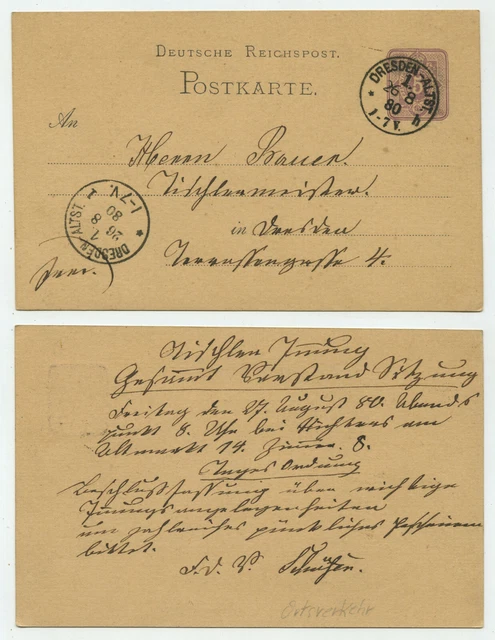 DEUTSCHE REICHSPOST.
POSTKARTE.
DRESDEN-ALTST.
I.
26 8
80
1-7V. h
An
Herrn Bauer.
Tischlermeister.
in Dresden
Terrassengasse 4.
DRESDEN-ALTST. I
26 8
80
1-7V.
Tischler Innung
Gesammt Vorstand Sitzung
Freitag den 27. August 80. Abends
punkt 8. Uhr bei am
Altmarkt 14. Zimmer. 8.
Tages Ordnung
Beschlussfassung über wichtige
Innungsangelegenheiten
um zahlreiches pünktliches
bittet.
F. d. V.
Ortsverkehr